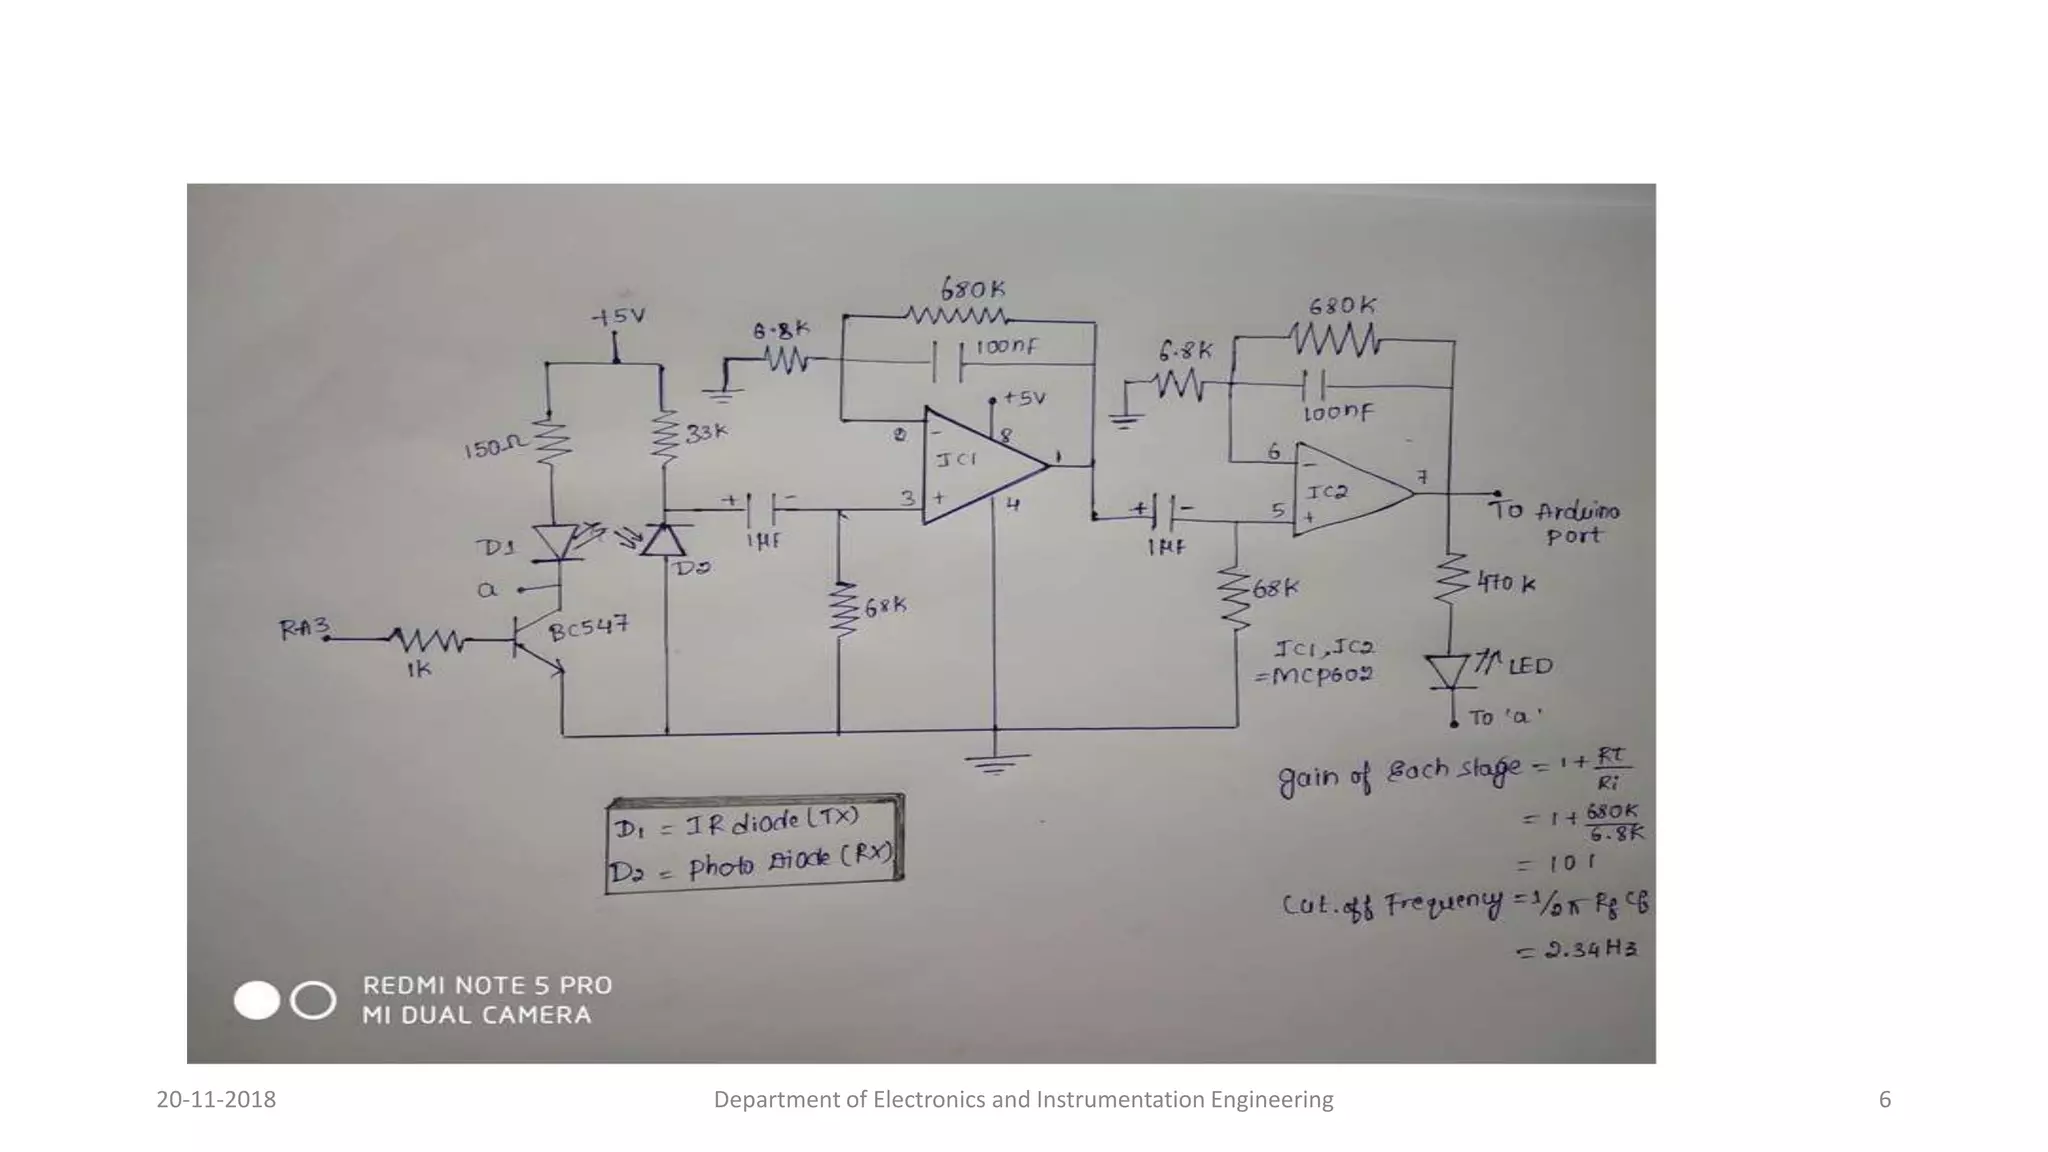 680K
680K
+5V
6.8K
100nF
6.8K
+5V
100nF
150Ω
33K
2
-
8
IC1
1
6
-
7
IC2
3
+
4
+
-
1µF
+
-
1µF
5
+
To Arduino
Port
D1
D2
a
470 K
68K
68K
RA3
BC547
1K
IC1, IC2
=MCP602
LED
To 'a'
gain of Each stage = 1+ Rf
Ri
= 1+ 680K
6.8K
= 101
Cut.off Frequency = 1/2π Rf Cf
= 2.34Hz
D1 = IR diode (TX)
D2 = Photo Diode (RX)
REDMI NOTE 5 PRO
MI DUAL CAMERA
20-11-2018
Department of Electronics and Instrumentation Engineering
6